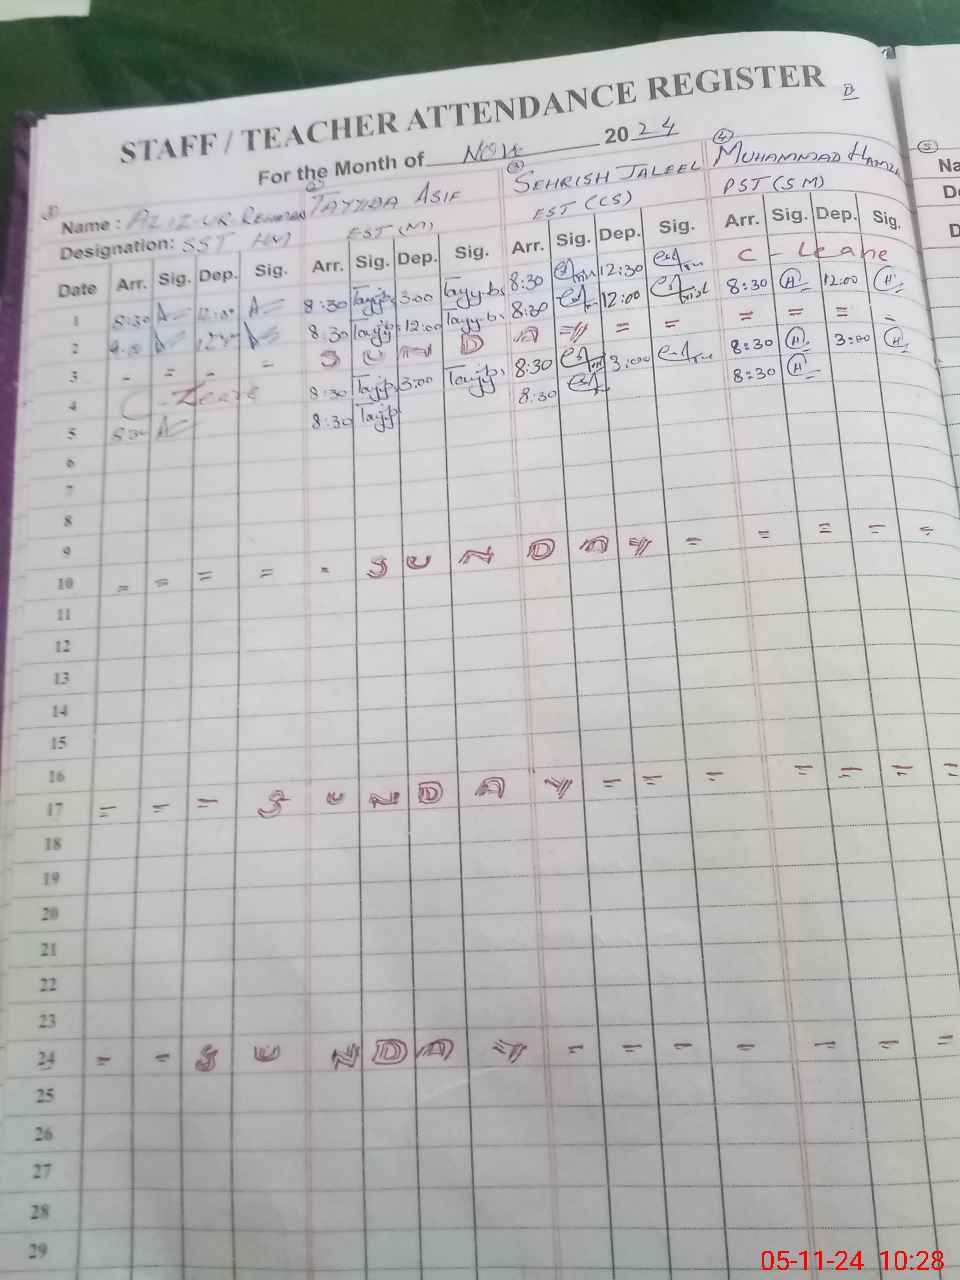 D
STAFF / TEACHER ATTENDANCE REGISTER
For the Month of Nov 2024
① ② ③ ④ ⑤
Name : AZIZ-UR-REHMAN TAYYBA ASIF SEHRISH JALEEL MUHAMMAD HAMZA Na
Designation: SST EST (M) EST (CS) PST (SM) D
Date Arr. Sig. Dep. Sig. Arr. Sig. Dep. Sig. Arr. Sig. Dep. Sig. Arr. Sig. Dep. Sig.
1 8:30 A 12:30 A 8:30 Tayyba 3:00 Tayyba 8:30 12:30 C - Leave
2 A A 8:30 Tayyb 12:00 Tayyba 8:30 12:00 8:30 H 12:00 H
3 - = - - S U N D A Y = = = = = -
4 C - Leave 8:30 Tayyb 3:00 Tayyb 8:30 3:00 8:30 H 3:00 H
5 8:30 A 8:30 Tayyb 8:30 8:30 H
6
7
8
9
10 = = = = - S U N D A Y = = = = =
11
12
13
14
15
16
17 = = = S U N D A Y = = = = = = =
18
19
20
21
22
23
24 = = S U N D A Y = = = = = = =
25
26
27
28
29
05-11-24 10:28